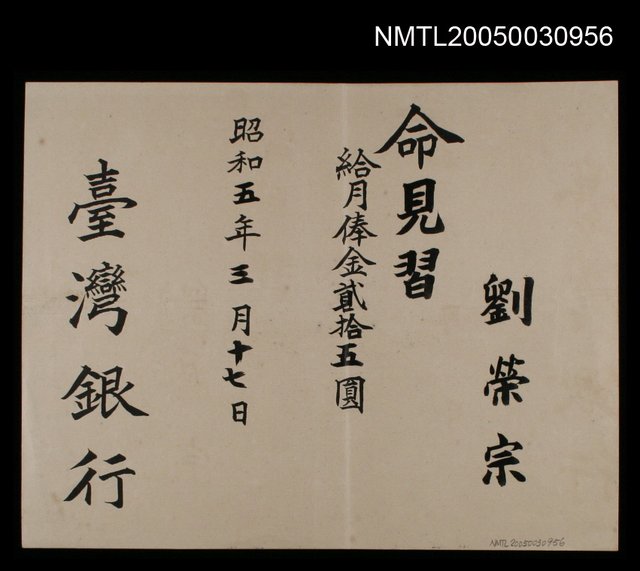 NMTL20050030956
劉榮宗
命見習
給月俸金貳拾五圓
昭和五年三月十七日
臺灣銀行
NMTL20050030956